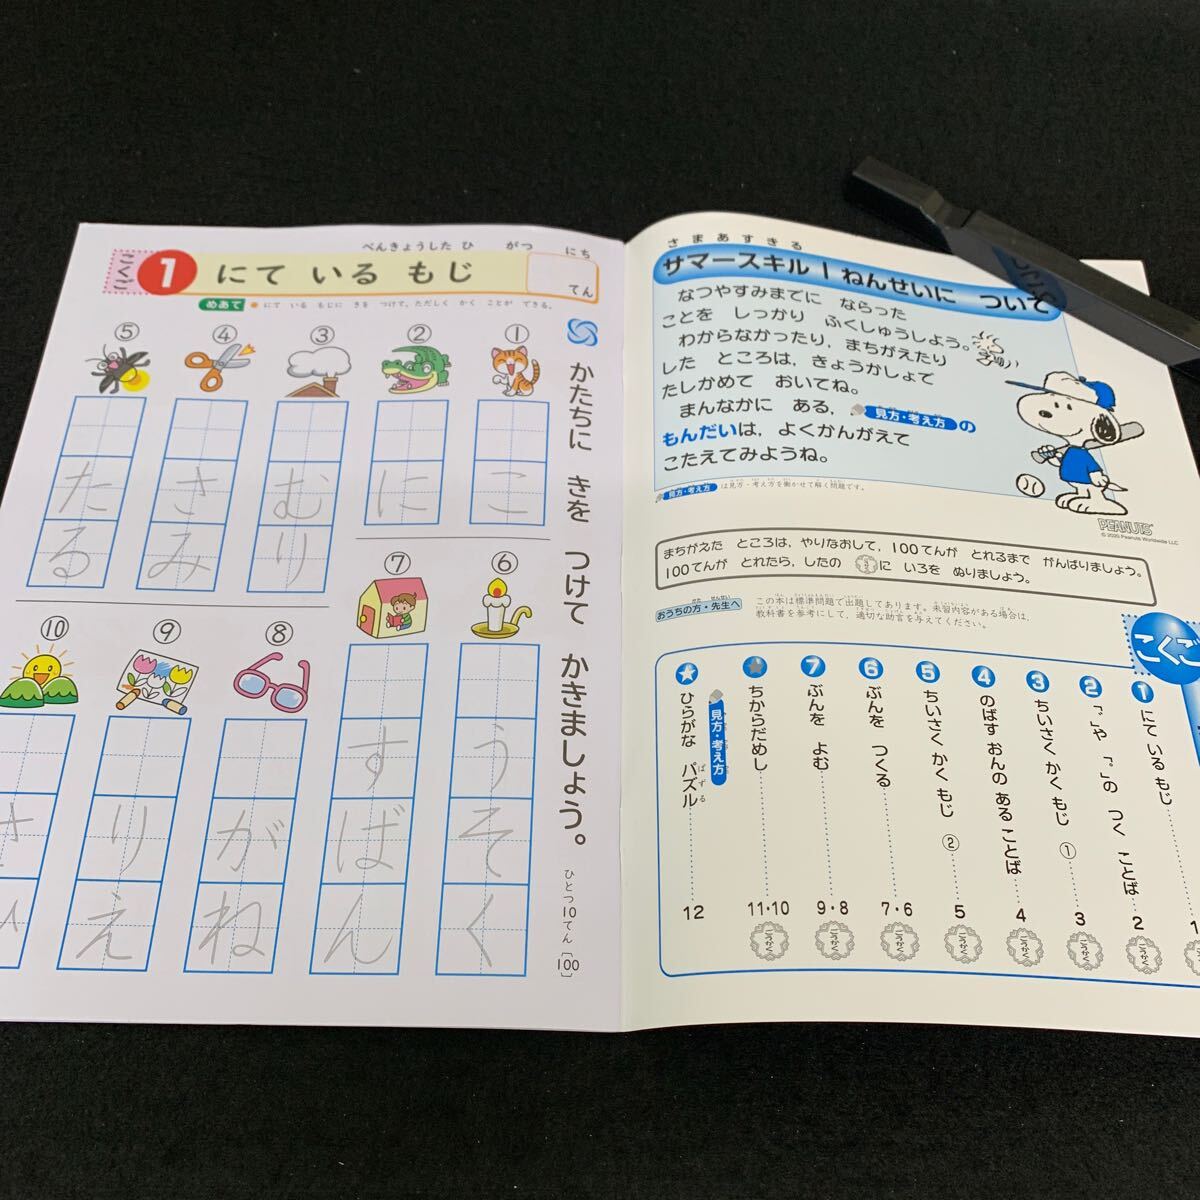 べんきょうした ひ　がつ　にち
こくご
1 にて いる もじ
てん
めあて ●にて いる もじに きを つけて、ただしく かく ことが できる。
かたちに きを つけて かきましょう。
ひとつ10てん
100
①
こ
②
に
③
むり
④
さみ
⑤
たる
⑥
うそく
⑦
すばん
⑧
がね
⑨
りえ
⑩
さまあすきる
サマースキル1ねんせいに ついて
なつやすみまでに ならった
ことを しっかり ふくしゅうしよう。
わからなかったり，まちがえたり
した ところは，きょうかしょで
たしかめて おいてね。
まんなかに ある， 見方・考え方 の
もんだいは，よくかんがえて
こたえてみようね。
見方・考え方 は見方・考え方を働かせて解く問題です。
PEANUTS
© 2020 Peanuts Worldwide LLC
まちがえた ところは，やりなおして，100てんが とれるまで がんばりましょう。
100てんが とれたら，したの に いろを ぬりましょう。
おうちの方・先生へ
この本は標準問題で出題してあります。未習内容がある場合は，
教科書を参考にして，適切な助言を与えてください。
こくご
1 にて いる もじ 1
2 「゛」や 「゜」の つく ことば 2 ごうかく
3 ちいさく かく もじ ① 3 ごうかく
4 のばす おんの ある ことば 4 ごうかく
5 ちいさく かく もじ ② 5 ごうかく
6 ぶんを つくる 7・6 ごうかく
7 ぶんを よむ 9・8 ごうかく
★ ちからだめし 11・10 ごうかく
★ 見方・考え方 ひらがな パズル ぱずる 12